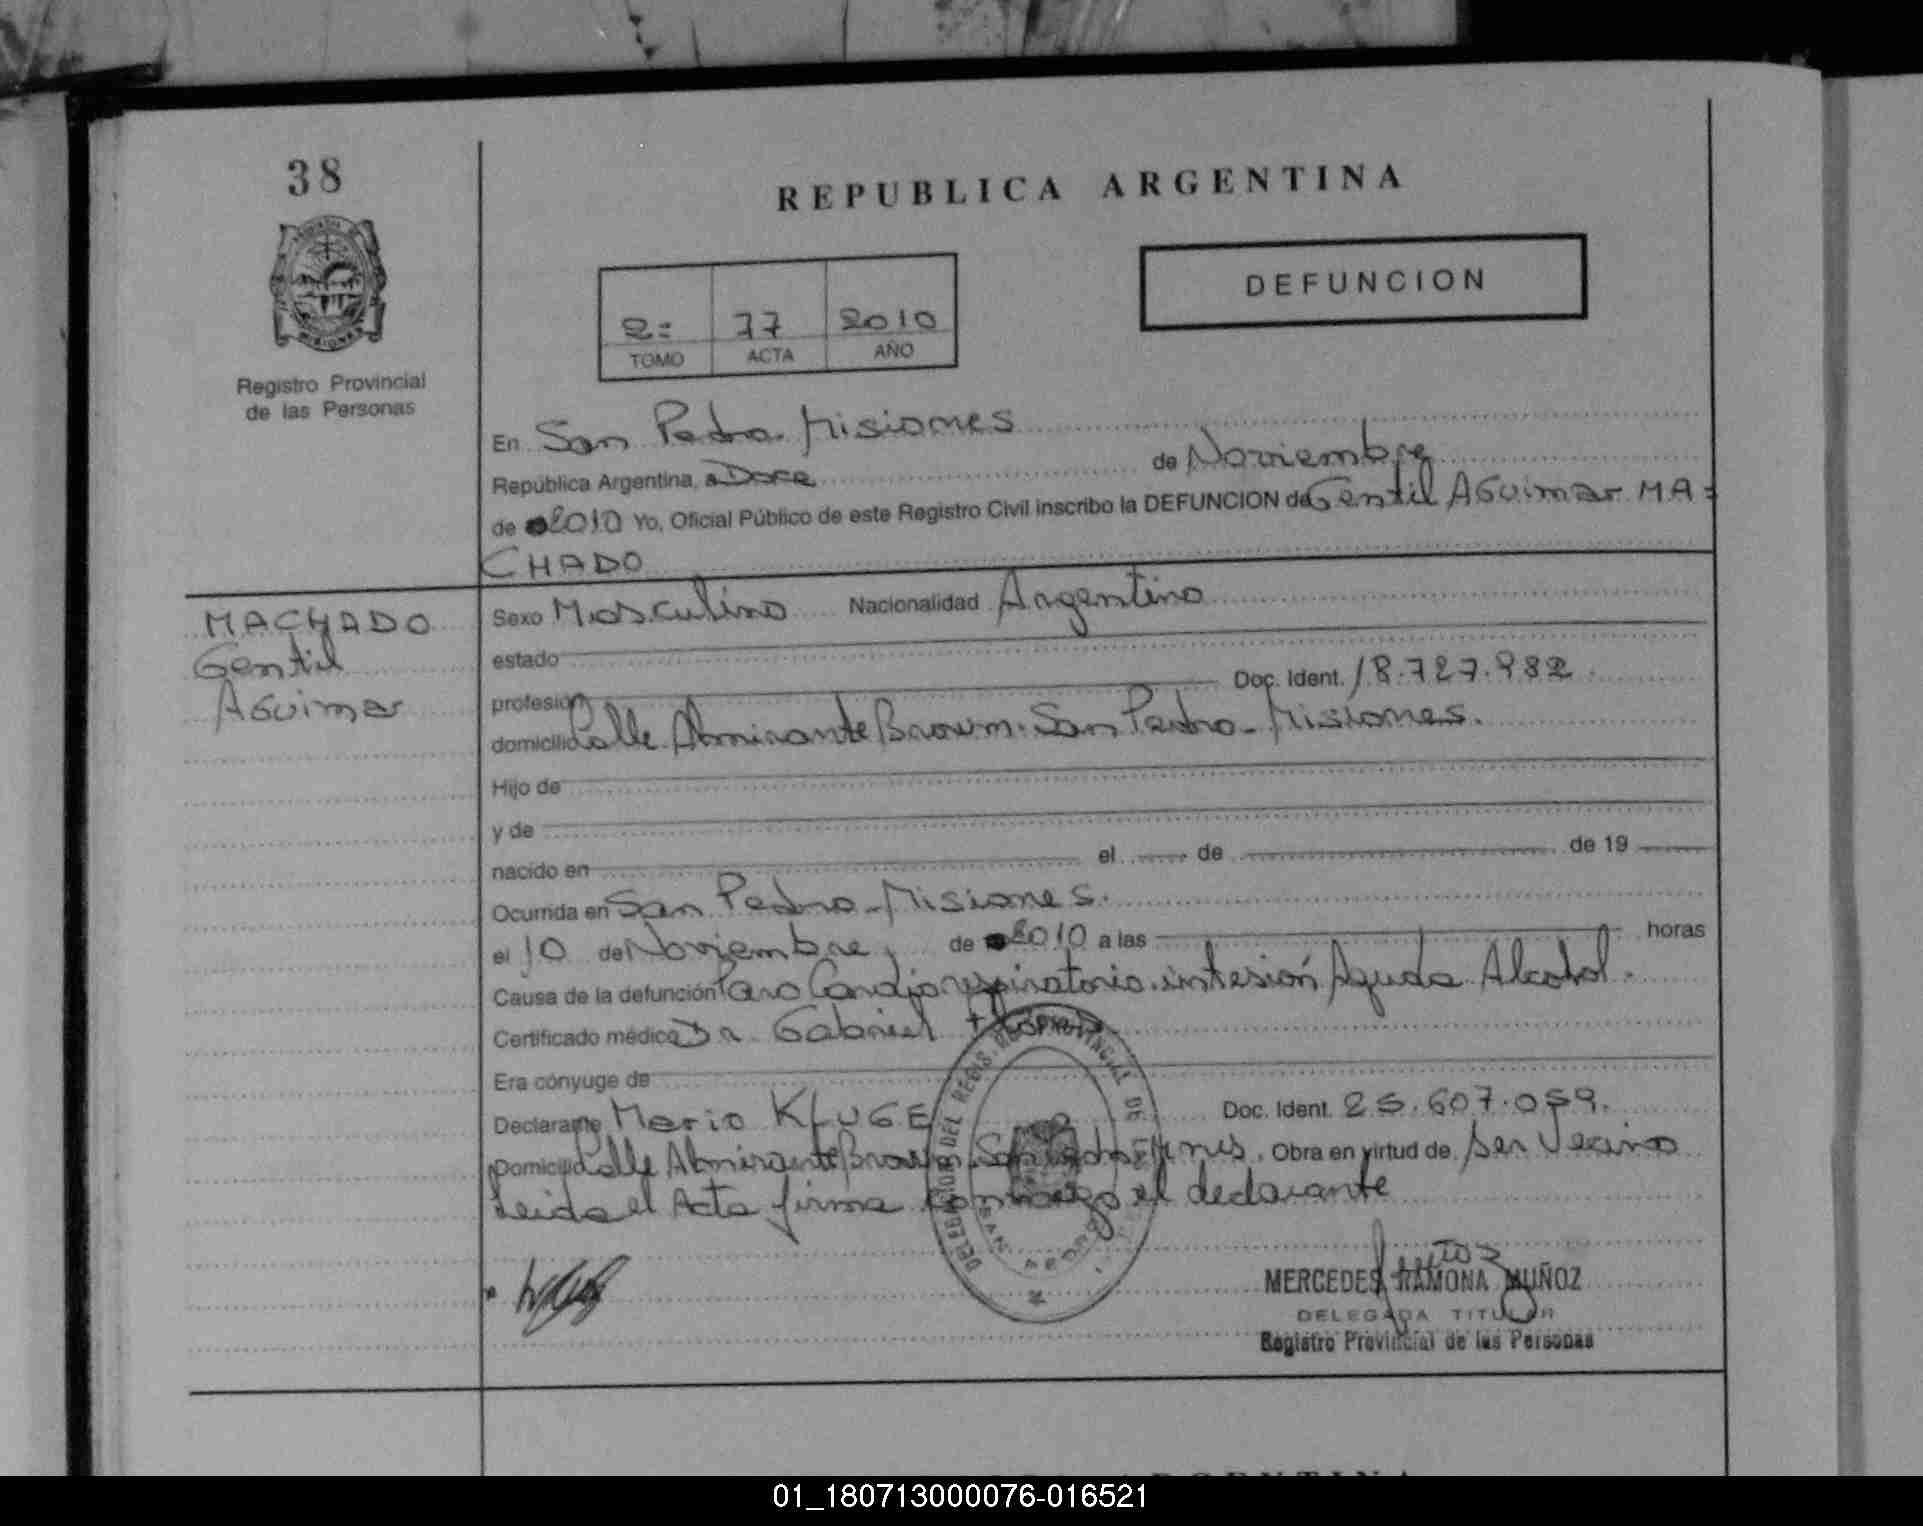 38
REPUBLICA ARGENTINA
DEFUNCION
2= 77 2010
TOMO ACTA AÑO
Registro Provincial
de las Personas
En San Pedro. Misiones
República Argentina, a Doce de Noviembre
de 2010 Yo, Oficial Público de este Registro Civil inscribo la DEFUNCION de Gentil AGuimar MA=
CHADO
MACHADO
Gentil
AGuimar
Sexo Masculino Nacionalidad Argentino
estado
profesión Doc. Ident. 18.727.982
domicilio Calle Almirante Brown. San Pedro - Misiones.
Hijo de
y de
nacido en el de de 19
Ocurrida en San Pedro - Misiones.
el 10 de Noviembre, de 2010 a las horas
Causa de la defunción Paro Cardiorespiratorio. intesión Aguda Alcohol.
Certificado médico Dr. Gabriel
Era cónyuge de
Declarante Mario KLUGE Doc. Ident. 25.607.059.
Domicilio Calle Almirante Brown. San Pedro Mnes. Obra en virtud de Ser Vecino
Leida el Acta firma conmigo el declarante
DELEGACION DEL REGIS. PROVINCIAL DE
SAN PEDRO
MERCEDES RAMONA MUÑOZ
DELEGADA TITULAR
Registro Provincial de las Personas
ARGENTINA
01_180713000076-016521